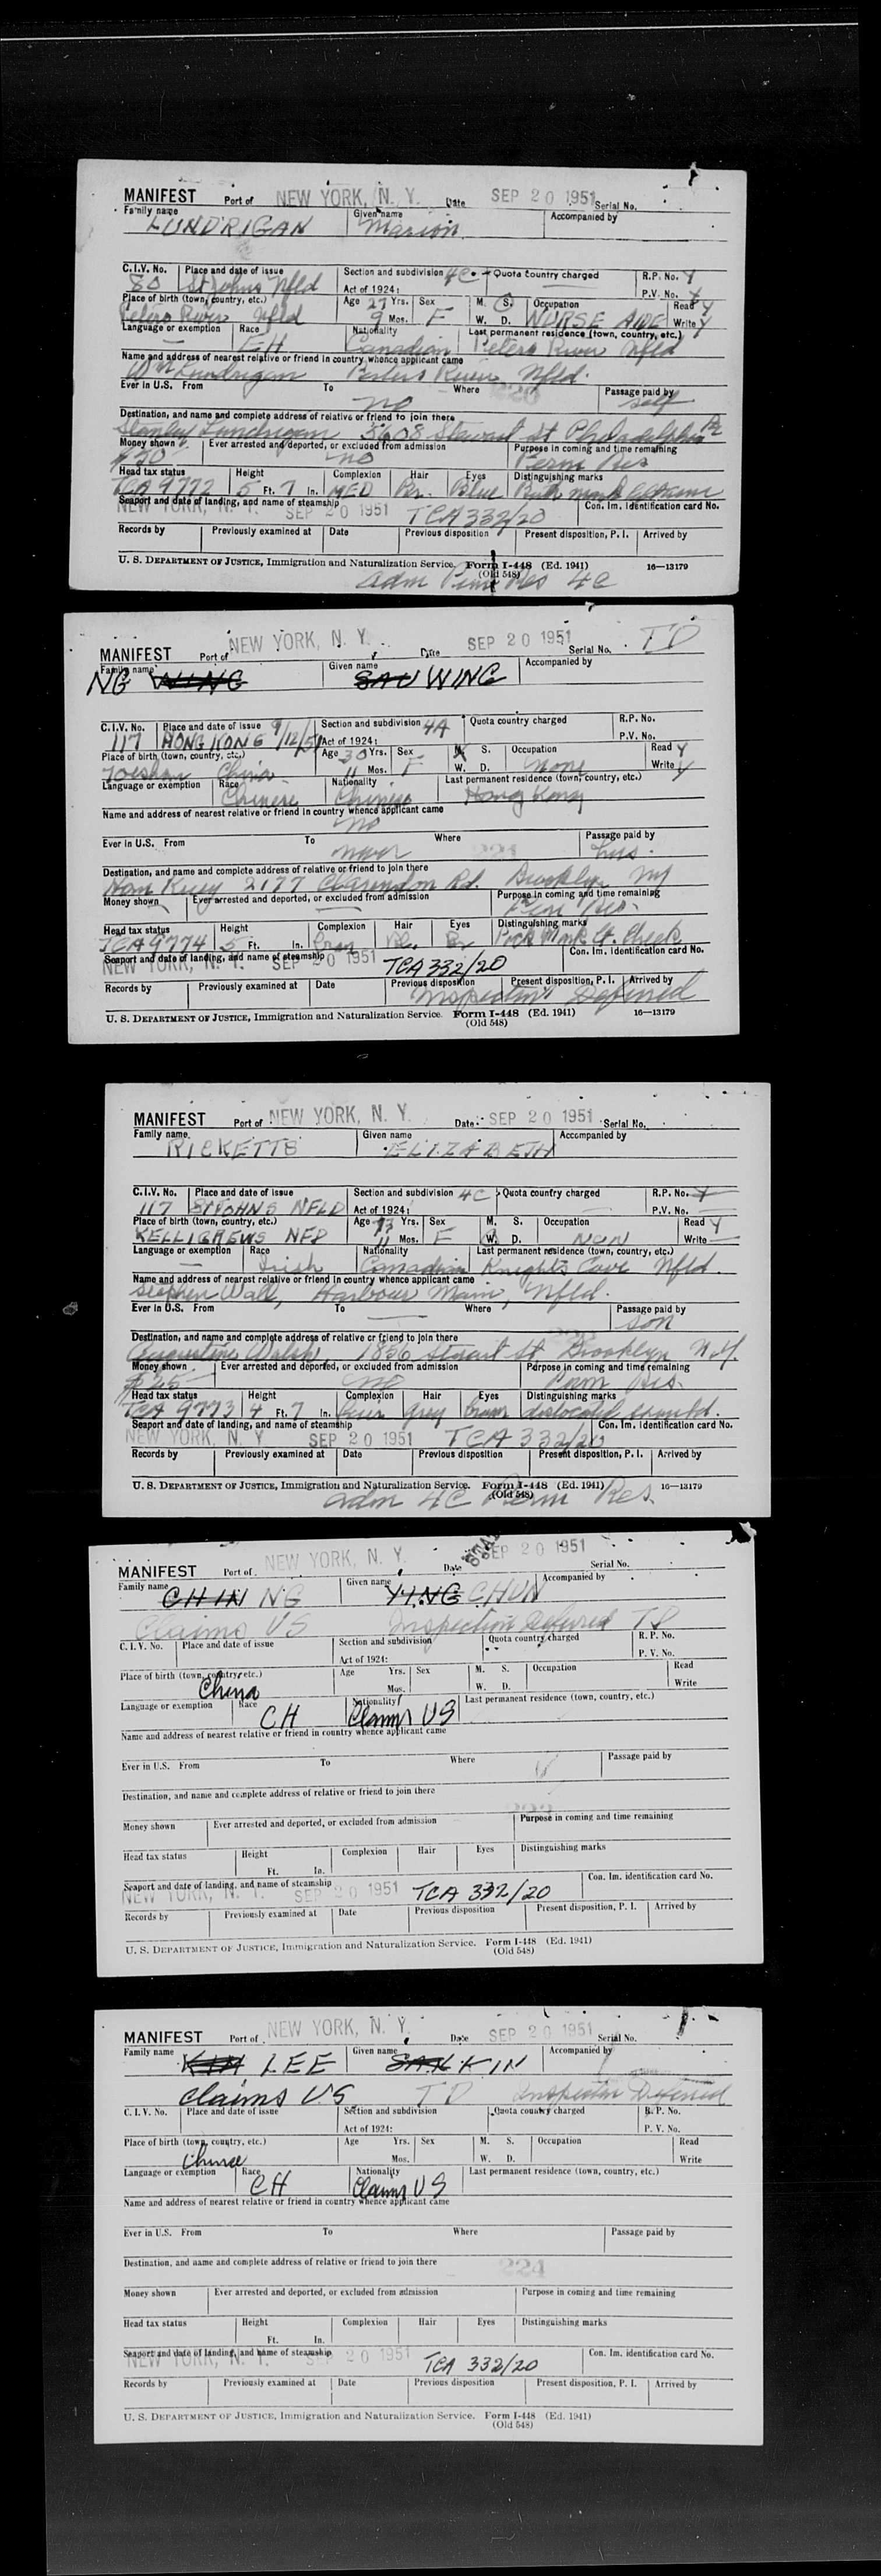 MANIFEST Port of NEW YORK, N. Y. Date SEP 20 1951 Serial No.
Family name LUNDRIGAN Given name Marion Accompanied by
C.I.V. No. Place and date of issue Section and subdivision 4C Quota country charged R.P. No. Y
80 St Johns Nfld Act of 1924: P.V. No.
Place of birth (town, country, etc.) Age 27 Yrs. Sex M. S. Occupation Read Y
Peters River Nfld 9 Mos. F W. D. NURSE AIDE Write Y
Language or exemption Race Nationality Last permanent residence (town, country, etc.)
— EH Canadian Peters River Nfld
Name and address of nearest relative or friend in country whence applicant came
Wm Lundrigan Peters River Nfld.
Ever in U.S. From To Where Passage paid by
no self
Destination, and name and complete address of relative or friend to join there
Stanley Lundrigan 3608 Stewart St Philadelphia Pa
Money shown Ever arrested and deported, or excluded from admission Purpose in coming and time remaining
no Perm Res
Head tax status Height Complexion Hair Eyes Distinguishing marks
TCA 9772 5 Ft. 7 In. MED Br. Blue Birth mark
Seaport and date of landing, and name of steamship Con. Im. Identification card No.
NEW YORK, N. Y. SEP 20 1951 TCA 332/20
Records by Previously examined at Date Previous disposition Present disposition, P. I. Arrived by
U. S. DEPARTMENT OF JUSTICE, Immigration and Naturalization Service. Form I-448 (Ed. 1941) 16—13179
(Old 548)
adm Perm Res 4C
MANIFEST Port of NEW YORK, N. Y. Date SEP 20 1951 Serial No. TD
Family name NG WING Given name SAU WING Accompanied by
C.I.V. No. Place and date of issue Section and subdivision 4A Quota country charged R.P. No.
117 HONG KONG 9/12/51 Act of 1924: P.V. No.
Place of birth (town, country, etc.) Age 30 Yrs. Sex M. S. Occupation Read Y
Toishan China 11 Mos. F W. D. None Write Y
Language or exemption Race Nationality Last permanent residence (town, country, etc.)
Chinese Chinese Hong Kong
Name and address of nearest relative or friend in country whence applicant came
no
Ever in U.S. From To Where Passage paid by
never 221 hus.
Destination, and name and complete address of relative or friend to join there
2177 Clarendon Rd. Brooklyn NY
Money shown Ever arrested and deported, or excluded from admission Purpose in coming and time remaining
— Perm Res.
Head tax status Height Complexion Hair Eyes Distinguishing marks
TCA 9774 5 Ft. In. Bl. Br. Pock Mark Lt. Cheek
Seaport and date of landing, and name of steamship Con. Im. identification card No.
NEW YORK, N. Y. SEP 20 1951 TCA 332/20
Records by Previously examined at Date Previous disposition Present disposition, P. I. Arrived by
Inspection Deferred
U. S. DEPARTMENT OF JUSTICE, Immigration and Naturalization Service. Form I-448 (Ed. 1941) 16—13179
(Old 548)
MANIFEST Port of NEW YORK, N. Y. Date SEP 20 1951 Serial No.
Family name RICKETTS Given name ELIZABETH Accompanied by
C.I.V. No. Place and date of issue Section and subdivision 4C Quota country charged R.P. No.
117 ST JOHNS NFLD Act of 1924: P.V. No.
Place of birth (town, country, etc.) Age 73 Yrs. Sex M. S. Occupation Read Y
KELLIGREWS NFD 11 Mos. F W. D. NON Write —
Language or exemption Race Nationality Last permanent residence (town, country, etc.)
— Irish Canadian Knights Cove Nfld.
Name and address of nearest relative or friend in country whence applicant came
Stephen Wall, Harbour Main, Nfld.
Ever in U.S. From To Where Passage paid by
— son
Destination, and name and complete address of relative or friend to join there
Augustine Walsh, 1836 Stuart St Brooklyn N.Y.
Money shown Ever arrested and deported, or excluded from admission Purpose in coming and time remaining
$25 no Perm Res.
Head tax status Height Complexion Hair Eyes Distinguishing marks
TCA 9773 4 Ft. 7 In. Grey Brown
Seaport and date of landing, and name of steamship Con. Im. identification card No.
NEW YORK, N. Y. SEP 20 1951 TCA 332/20
Records by Previously examined at Date Previous disposition Present disposition, P. I. Arrived by
U. S. DEPARTMENT OF JUSTICE, Immigration and Naturalization Service. Form I-448 (Ed. 1941) 16—13179
(Old 548)
adm 4C Perm Res.
MANIFEST Port of NEW YORK, N. Y. Date SEP 20 1951 Serial No.
Family name CHIN NG Given name YING CHUN Accompanied by
Claims US Inspection Deferred TD
C. I. V. No. Place and date of issue Section and subdivision Quota country charged R. P. No.
Act of 1924: P. V. No.
Place of birth (town, country, etc.) Age Yrs. Sex M. S. Occupation Read
China Mos. W. D. Write
Language or exemption Race Nationality Last permanent residence (town, country, etc.)
CH Claims US
Name and address of nearest relative or friend in country whence applicant came
Ever in U.S. From To Where Passage paid by
Destination, and name and complete address of relative or friend to join there
Money shown Ever arrested and deported, or excluded from admission Purpose in coming and time remaining
Head tax status Height Complexion Hair Eyes Distinguishing marks
Ft. In.
Seaport and date of landing, and name of steamship Con. Im. identification card No.
NEW YORK, N. Y. SEP 20 1951 TCA 332/20
Records by Previously examined at Date Previous disposition Present disposition, P. I. Arrived by
U. S. DEPARTMENT OF JUSTICE, Immigration and Naturalization Service. Form I-448 (Ed. 1941)
(Old 548)
MANIFEST Port of NEW YORK, N. Y. Date SEP 20 1951 Serial No.
Family name LEE Given name KIN Accompanied by
Claims US TD Inspection Deferred
C. I. V. No. Place and date of issue Section and subdivision Quota country charged R. P. No.
Act of 1924: P. V. No.
Place of birth (town, country, etc.) Age Yrs. Sex M. S. Occupation Read
Mos. W. D. Write
Language or exemption Race Nationality Last permanent residence (town, country, etc.)
CH Claims US
Name and address of nearest relative or friend in country whence applicant came
Ever in U.S. From To Where Passage paid by
Destination, and name and complete address of relative or friend to join there
224
Money shown Ever arrested and deported, or excluded from admission Purpose in coming and time remaining
Head tax status Height Complexion Hair Eyes Distinguishing marks
Ft. In.
Seaport and date of landing, and name of steamship Con. Im. identification card No.
NEW YORK, N. Y. SEP 20 1951 TCA 332/20
Records by Previously examined at Date Previous disposition Present disposition, P. I. Arrived by
U. S. DEPARTMENT OF JUSTICE, Immigration and Naturalization Service. Form I-448 (Ed. 1941)
(Old 548)